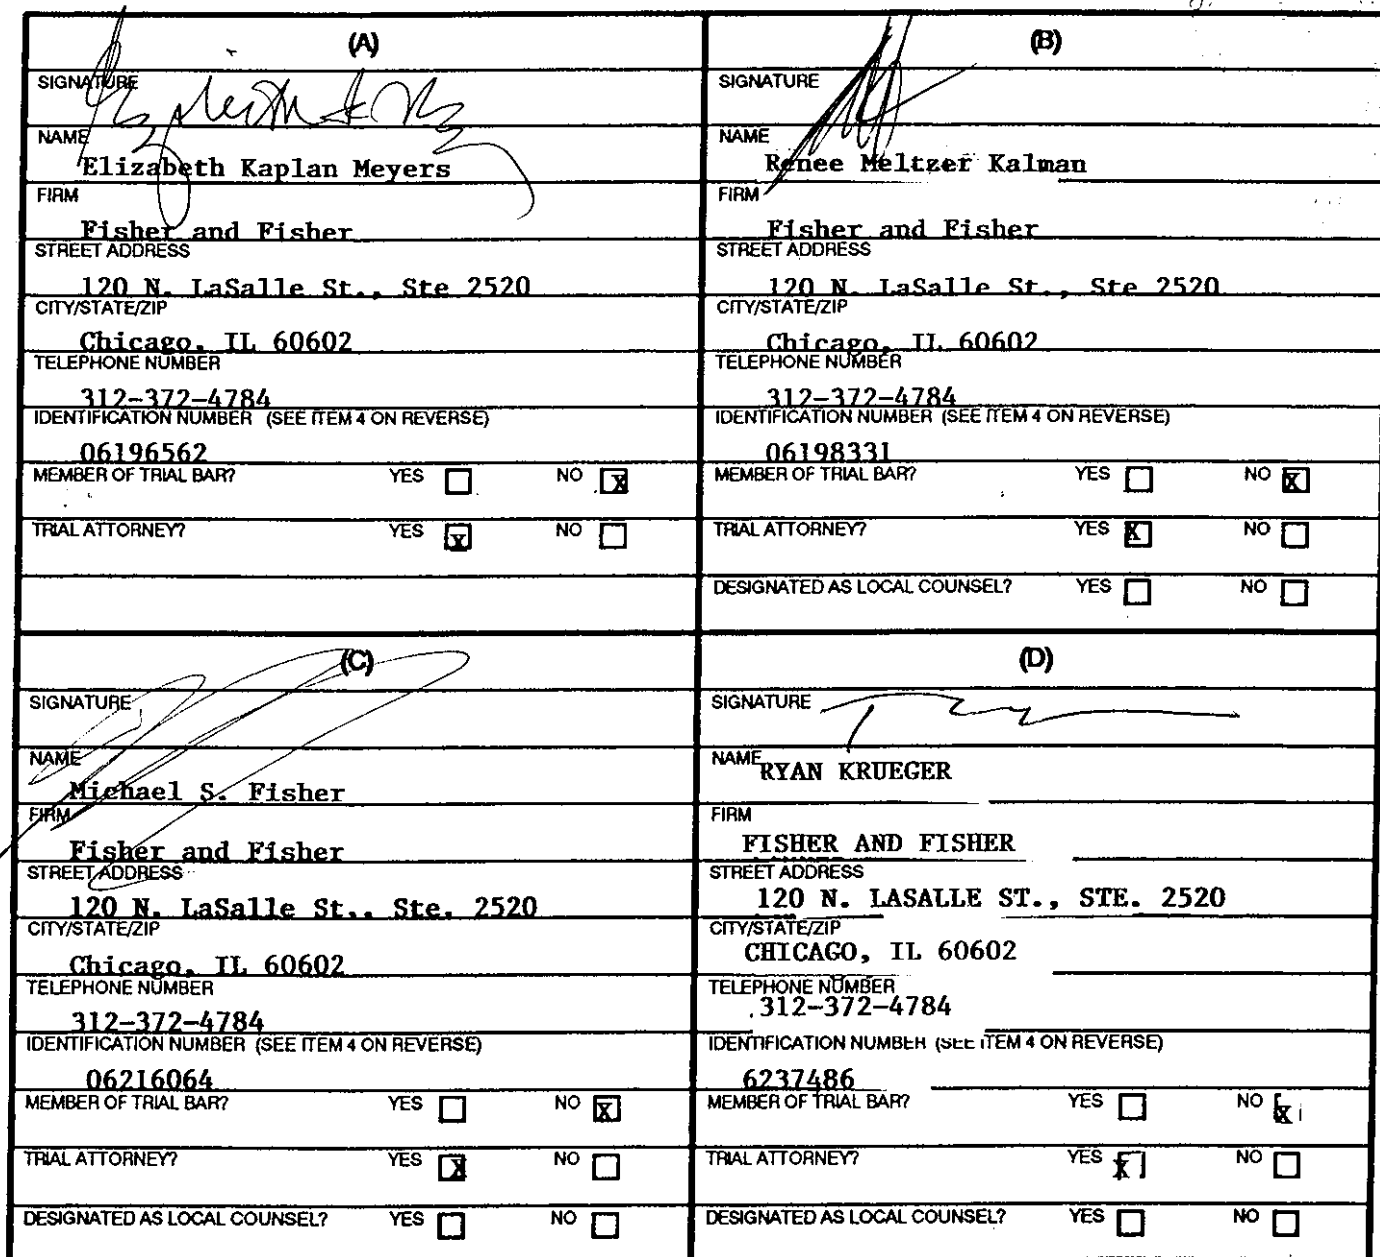 (A)
SIGNATURE
NAME
Elizabeth Kaplan Meyers
FIRM
Fisher and Fisher
STREET ADDRESS
120 N. LaSalle St., Ste 2520
CITY/STATE/ZIP
Chicago, IL 60602
TELEPHONE NUMBER
312-372-4784
IDENTIFICATION NUMBER (SEE ITEM 4 ON REVERSE)
06196562
MEMBER OF TRIAL BAR? YES NO X
TRIAL ATTORNEY? YES X NO
(B)
SIGNATURE
NAME
Renee Meltzer Kalman
FIRM
Fisher and Fisher
STREET ADDRESS
120 N. LaSalle St., Ste 2520
CITY/STATE/ZIP
Chicago, IL 60602
TELEPHONE NUMBER
312-372-4784
IDENTIFICATION NUMBER (SEE ITEM 4 ON REVERSE)
06198331
MEMBER OF TRIAL BAR? YES NO X
TRIAL ATTORNEY? YES X NO
DESIGNATED AS LOCAL COUNSEL? YES NO
(C)
SIGNATURE
NAME
Michael S. Fisher
FIRM
Fisher and Fisher
STREET ADDRESS
120 N. LaSalle St., Ste. 2520
CITY/STATE/ZIP
Chicago, IL 60602
TELEPHONE NUMBER
312-372-4784
IDENTIFICATION NUMBER (SEE ITEM 4 ON REVERSE)
06216064
MEMBER OF TRIAL BAR? YES NO X
TRIAL ATTORNEY? YES X NO
DESIGNATED AS LOCAL COUNSEL? YES NO
(D)
SIGNATURE
NAME
RYAN KRUEGER
FIRM
FISHER AND FISHER
STREET ADDRESS
120 N. LASALLE ST., STE. 2520
CITY/STATE/ZIP
CHICAGO, IL 60602
TELEPHONE NUMBER
312-372-4784
IDENTIFICATION NUMBER (SEE ITEM 4 ON REVERSE)
6237486
MEMBER OF TRIAL BAR? YES NO X
TRIAL ATTORNEY? YES X NO
DESIGNATED AS LOCAL COUNSEL? YES NO